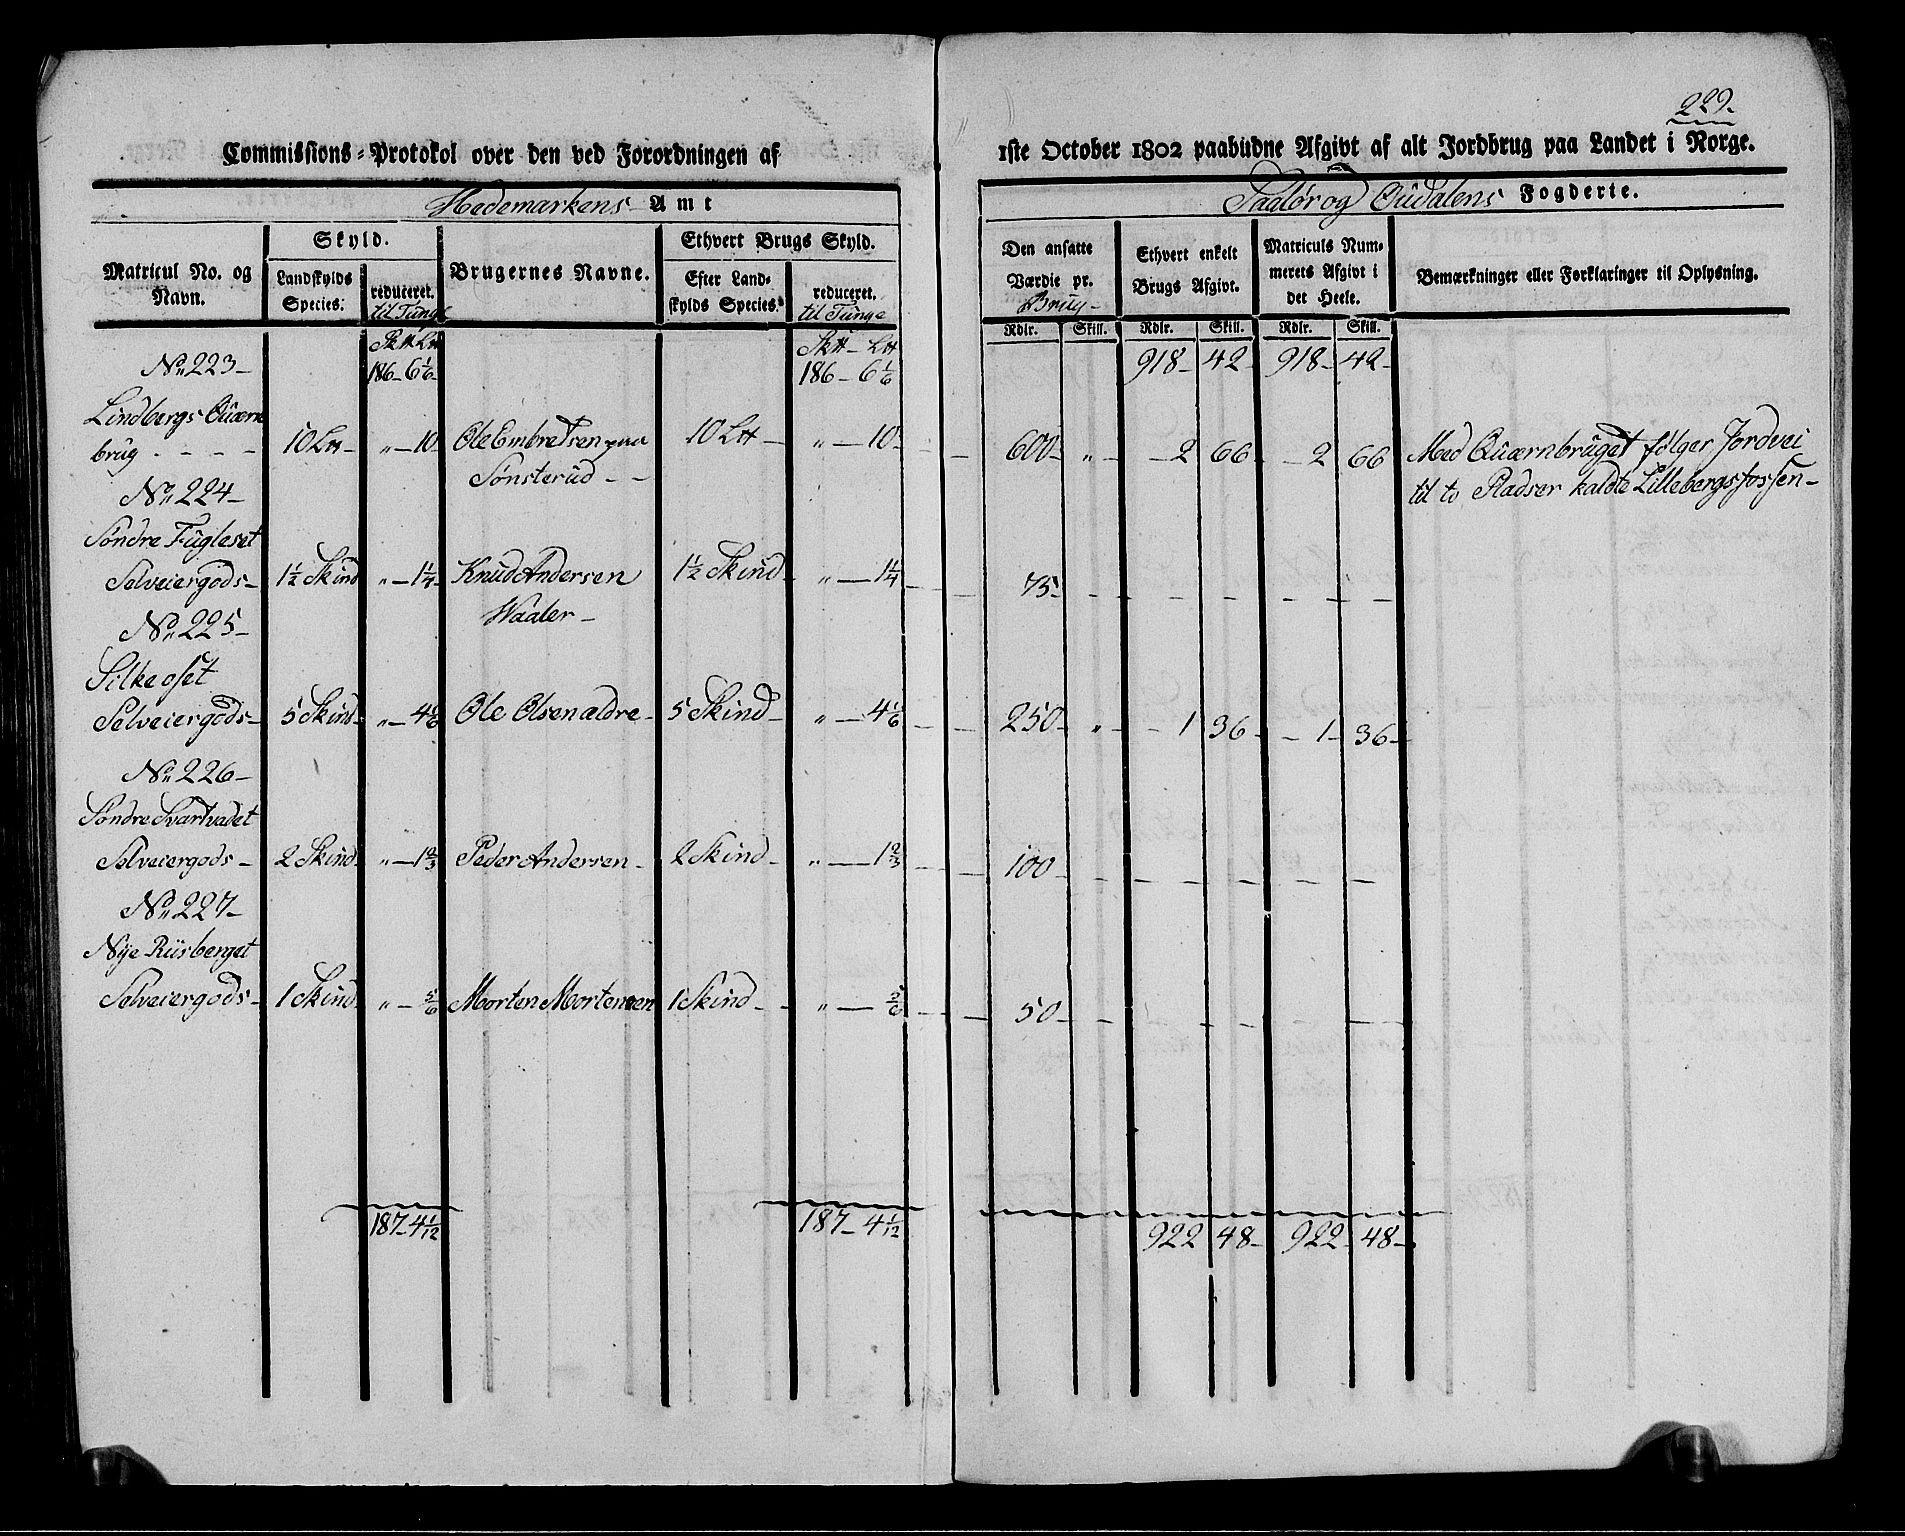 229.
Commissions-Protokol over den ved Forordningen af 1ste October 1802 paabudne Afgivt af alt Jordbrug paa Landet i Norge.
Hedemarkens Amt
Soelør og Oudalens Fogderie.
Matricul No. og Navn.
Skyld.
Landskylds Species.
reduceret. til Tunge
Brugernes Navne.
Ethvert Brugs Skyld.
Efter Landskylds Species.
reduceret. til Tunge
Den ansatte Værdie pr. Brug
Ethvert enkelt Brugs Afgivt.
Matriculs Nummerets Afgivt i det Heele.
Bemærkninger eller Forklaringer til Oplysning.
Rdlr. Skill. Rdlr. Skill. Rdlr. Skill.
No 223 -
186 - 6 1/6 - 186 - 6 1/6 918 - 42 - 918 - 42 -
Lindbergs Quærn
brug - - - - 10 L - " - 10 - Ole Embretsen paa 10 L - " - 10 - 600 - " - 2 66 - 2 66 Med Quærnbruget følger Jordvei
Sønsterud - - til to Pladser kaldte Lillebergsfossen -
No 224 -
Søndre Fugleset
Selveiergods - 1 1/2 Skind " - 1 1/4 - Knud Andersen 1 1/2 Skind - " - 1 1/4 75 -
Waaler -
No 225 -
Silkeoset
Selveiergods - 5 Skind - " - 4 1/6 Ole Olsen ældre - 5 Skind - " - 4 1/6 250 - " - 1 36 - 1 - 36 -
No 226 -
Søndre Svartvadet
Selveiergods - 2 Skind - " - 1 2/3 Peder Andersen - 2 Skind - " - 1 2/3 100
No 227 -
Nye Riisberget
Selveiergods - 1 Skind - " - 5/6 Morten Mortensen 1 Skind - " - 5/6 50 -
187 - 4 1/12 187 - 4 1/12 922 48 - 922 - 48 -